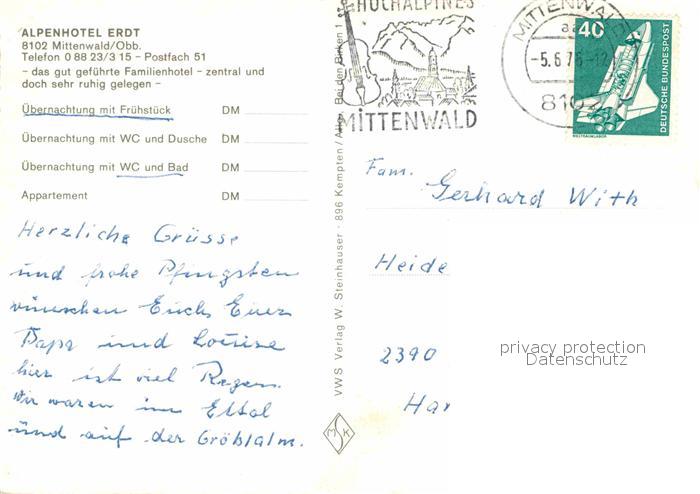 ALPENHOTEL ERDT
8102 Mittenwald/Obb.
Telefon 0 88 23/3 15 – Postfach 51
- das gut geführte Familienhotel - zentral und
doch sehr ruhig gelegen -
Übernachtung mit Frühstück DM
Übernachtung mit WC und Dusche DM
Übernachtung mit WC und Bad DM
Appartement DM
Herzliche Grüsse
und frohe Pfingsten
wünschen Euch Euer
Papa und Louise
hier ist viel Regen.
Wir waren im Ettal
und auf der Gröblalm.
VWS Verlag W. Steinhauser · 896 Kempten / Allg. Bei den Birken
MSK
HOCHALPINES
MITTENWALD
MITTENWALD
-5.6.76-12
8102
40
DEUTSCHE BUNDESPOST
WELTRAUMLABOR
Fam.
Gerhard With
Heide
2390
Har
privacy protection
Datenschutz